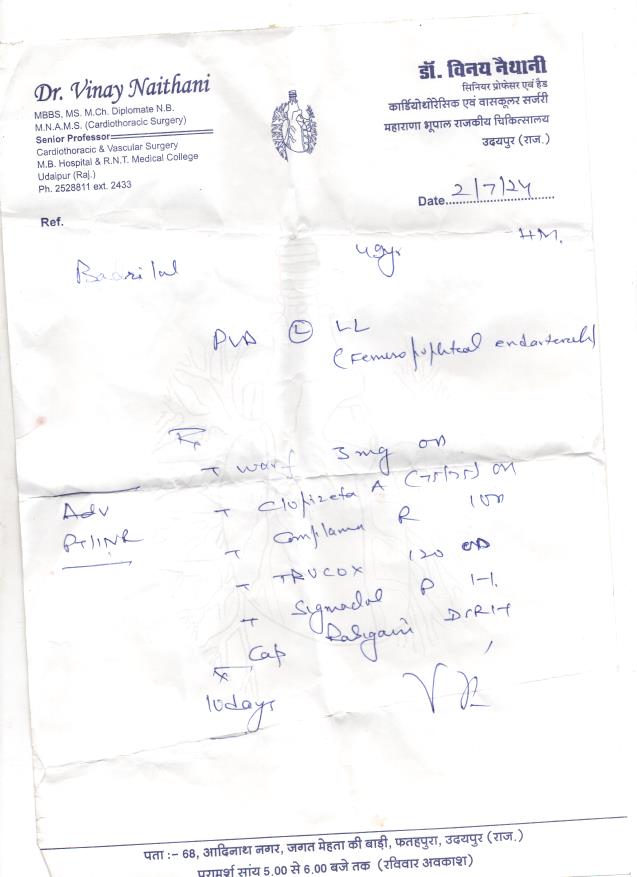 Dr. Vinay Naithani
MBBS, MS. M.Ch. Diplomate N.B.
M.N.A.M.S. (Cardiothoracic Surgery)
Senior Professor
Cardiothoracic & Vascular Surgery
M.B. Hospital & R.N.T. Medical College
Udaipur (Raj.)
Ph. 2528811 ext. 2433
डॉ. विनय नैथानी
सिनियर प्रोफेसर एवं हैड
कार्डियोथोरेसिक एवं वासकूलर सर्जरी
महाराणा भूपाल राजकीय चिकित्सालय
उदयपुर (राज.)
Date 2/7/24
Ref.
Badrilal 49yr HM.
PVD (L) LL
(Femoropopliteal
Rx
T warf 3mg OD
Adv T Clopizeta A (75/75) OD
PT/INR T Complama R
T TRUCOX 120 OD
T Sigmadol P 1-1
Cap
10 days
पता :– 68, आदिनाथ नगर, जगत मेहता की बाड़ी, फतहपुरा, उदयपुर (राज.)
परामर्श सांय 5.00 से 6.00 बजे तक (रविवार अवकाश)